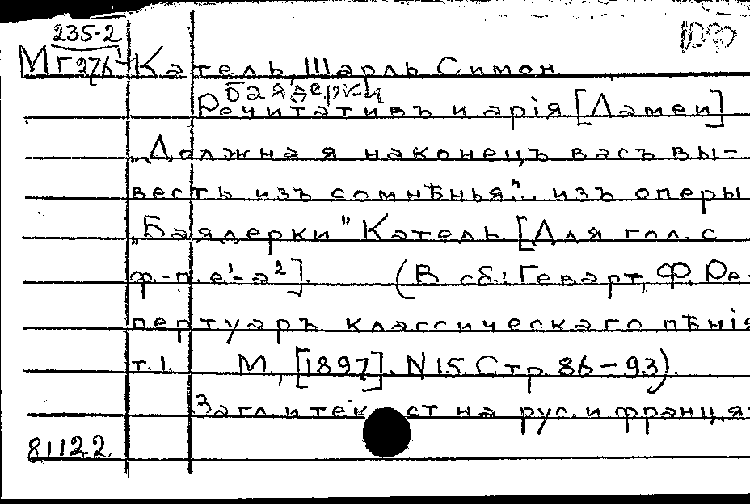 235-2
МГ 276¹ Катель, Шарль Симон
Баядерки
Речитативъ и арія [Ламеи]
„Должна я наконецъ васъ вы-
весть изъ сомнѣнья"... изъ оперы
„Баядерки" Катель [Для гол. с
ф-п. е¹-а²]. (В сб.: Геварт, Ф. Ре-
пертуаръ классическаго пѣнія
т. 1. М., [1897]. N 15 Стр. 86-93).
Загл. и текст на рус. и француз.
81122